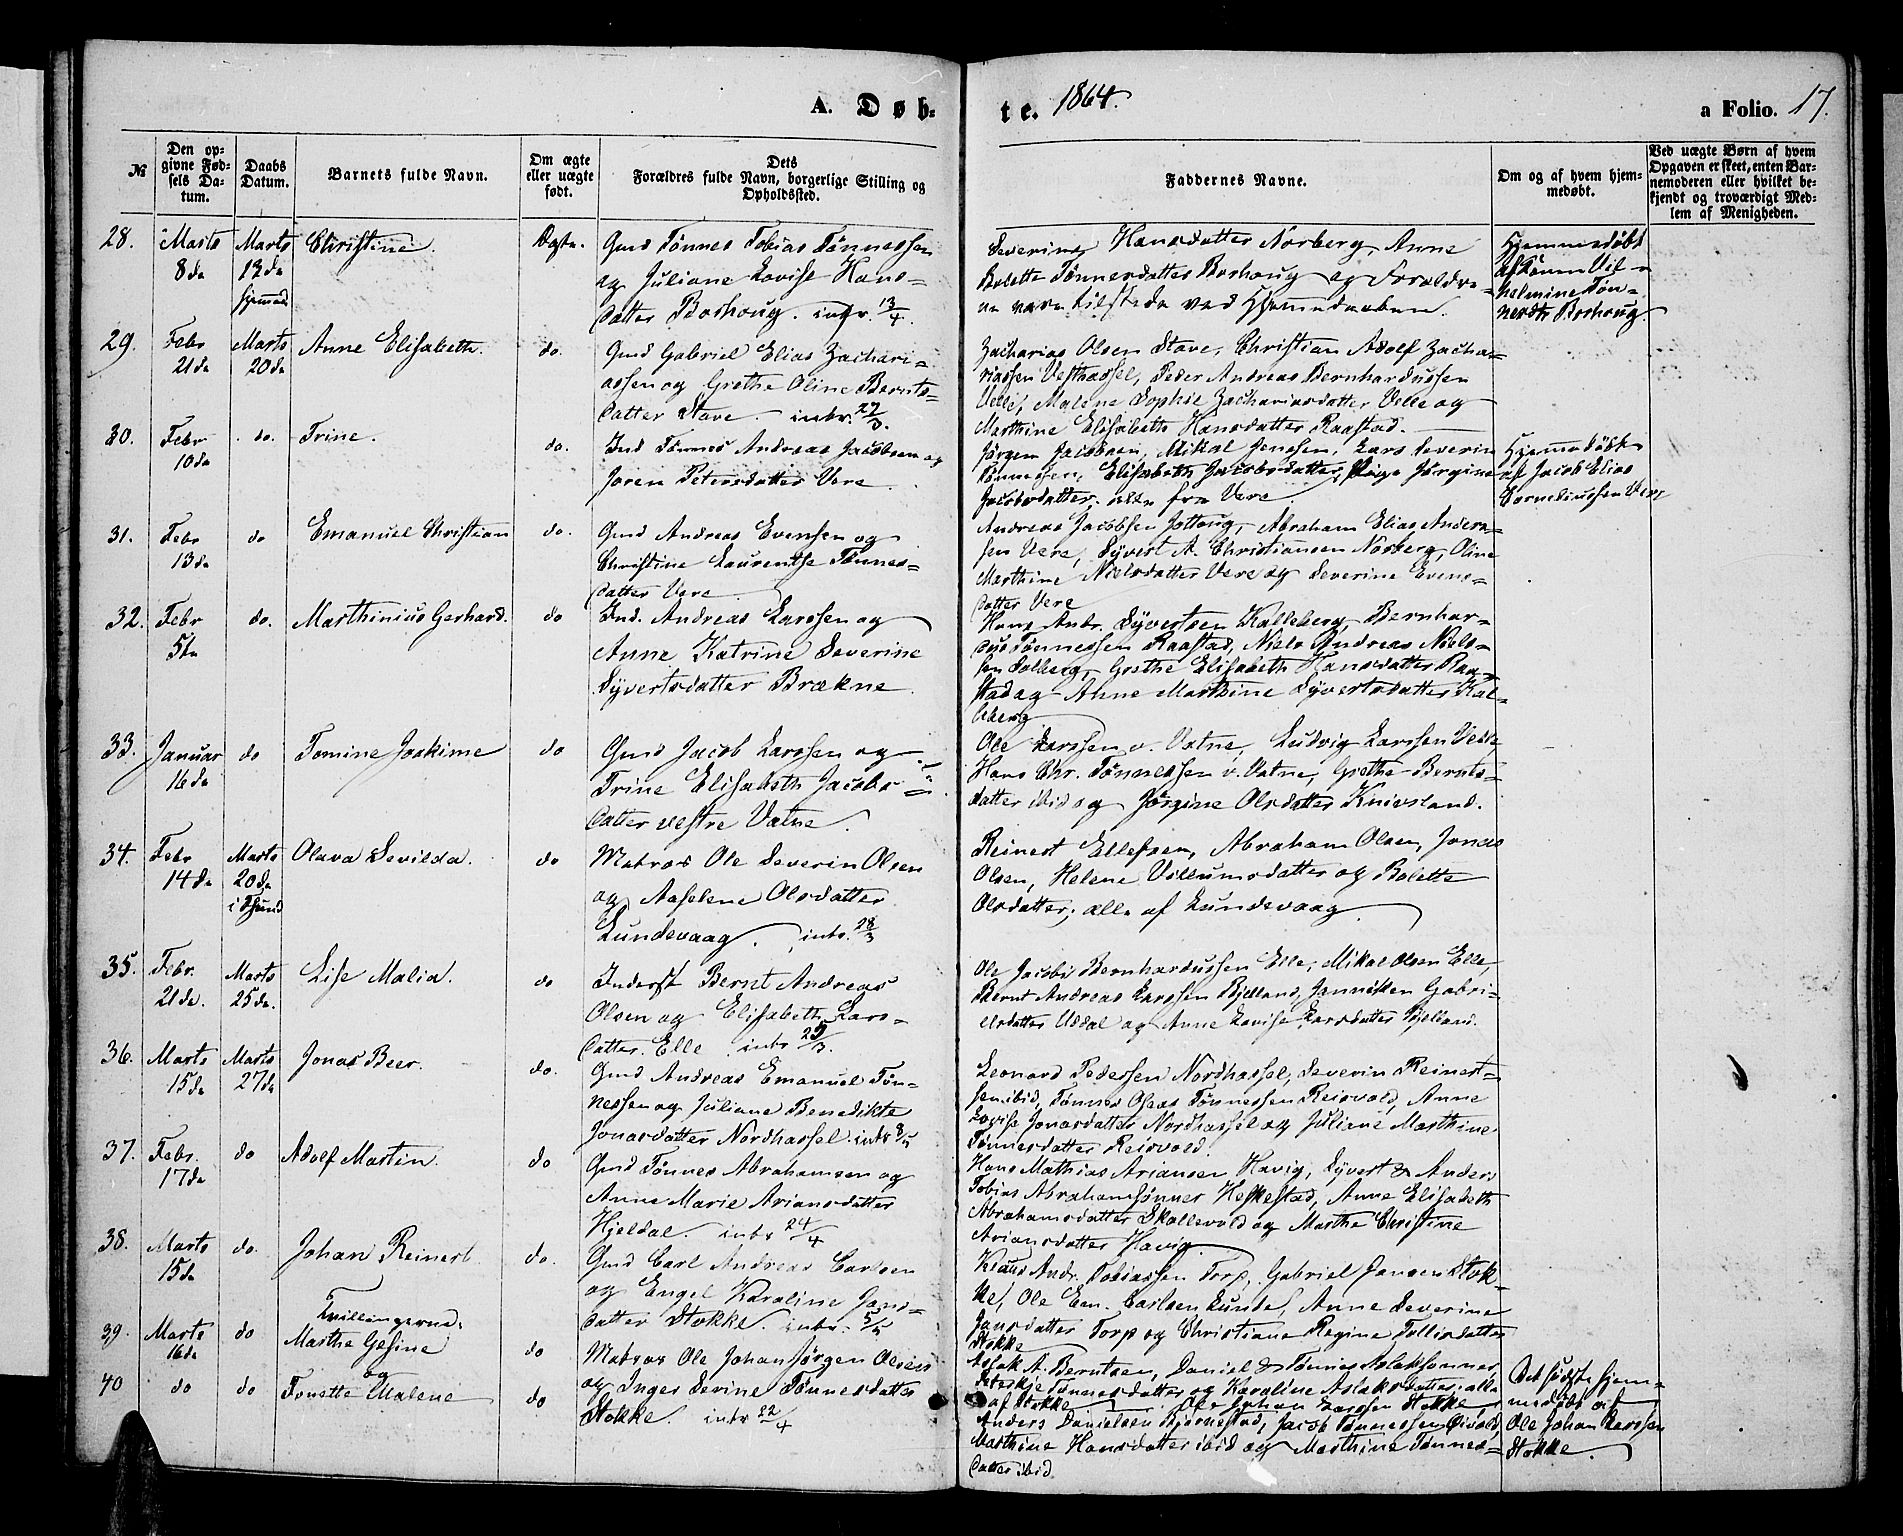 A. Døb-
te. 1864.
a Folio. 17.
№
Den op-
givne Fød-
sels Da-
tum.
Daabs
Datum.
Barnets fulde Navn.
Om ægte
eller uægte
født.
Dets
Forældres fulde Navn, borgerlige Stilling og
Opholdssted.
Faddernes Navne.
Om og af hvem hjem-
medøbt.
Ved uægte Børn af hvem
Opgaven er skeet, enten Bar-
nemoderen eller hvilket be-
kjendt og troværdigt Med-
lem af Menigheden.
28. Marts
8de
Marts
12de
hjemmed.
Christine.
Ægte.
Gmd Tønnes Tobias Tønnessen
og Juliane Lovise Hans-
datter Borhoug. intr. 13/4.
Severine Hansdatter Norberg, Anne
Bolette Tønnesdatter Borhoug og Forældre-
ne vare tilstede ved Hjemmedaaben.
Hjemmedøbt
af Vil-
helmine Tøn-
nesdtr Borhoug.
29. Febr
21de
Marts
20de
Anne Elisabeth.
do.
Gmd Gabriel Elias Zachari-
assen og Grethe Oline Bernts-
datter Stave. intr. 27/3.
Zacharias Olsen Stave, Christian Adolf Zacha-
riassen Vesthassel, Peder Andreas Bernhardussen
Velle, Malene Sophie Zachariasdatter Velle og
Marthine Elisabeth Hansdatter Raastad.
30. Febr
10de
do.
Trine.
do.
Ind Tønnes Andreas Jacobsen og
Joren Petersdatter Vere.
Jørgen Jacobsen, Mikal Jensen, Lars Severin
Tønnesen, Elisabeth Jacobsdatter, Pige Jørgine
Jacobsdatter. alle fra Vere.
Hjemmedøbt
af Jacob Elias
Corneliussen Vere
31. Febr
13de
do
Emanuel Christian
do.
Gmd Andreas Evensen og
Christine Laurentse Tønnes-
datter Vere.
Andreas Jacobsen Jottoug, Abraham Elias Anders-
sen Vere, Syvert A. Christiansen Norberg, Oline
Marthine Nielsdatter Vere og Severine Evens-
datter Vere
32. Febr
5te
do.
Marthinius Gerhard.
do
Ind. Andreas Larssen og
Anne Katrine Severine
Syvertsdatter Brækne.
Hans Andr. Syvertsen Kalleberg, Bernhar-
dus Tønnessen Raastad, Niels Andreas Niels-
sen Solberg, Grethe Elisabeth Hansdatter Raa-
stad og Anne Marthine Syvertsdatter Kal-
leberg
33. Januar
16de
do
Tomine Joakime
do
Gmd Jacob Larssen og
Trine Elisabeth Jacobs-
datter vestre Vatne.
Ole Larssen v. Vatne, Ludvig Larssen Velle
Hans Chr. Tønnessen v. Vatne, Grethe Bernts-
datter ibid og Jørgine Olsdatter Knivsland.
34. Febr
14de
Marts
20de
i Sund
Olava Sevilda.
do
Matros Ole Severin Olsen
og Aaselene Olsdatter
Lundevaag. intr. 28/3
Reinert Ellefsen, Abraham Olsen, Jonas
Olsen, Helene Villumsdatter og Bolette
Olsdatter. alle af Lundevaag.
35. Febr.
21de.
Marts
25de.
Lise Malia.
do
Inderst Bernt Andreas
Olsen og Elisabeth Lars-
datter. Elle. intr 25/3.
Ole Jacob Bernhardussen Elle, Mikal Olsen Elle,
Bernt Andreas Larssen Bjelland, Janniken Gabri-
elsdatter Uddal og Anne Lovise Larsdatter Bjelland.
36. Marts
15de
Marts
27de
Jonas Beer.
do.
Gmd Andreas Emanuel Tøn-
nessen og Juliane Benedikte
Jonasdatter Nordhassel. intr 8/5
Leonard Pedersen Nordhassel, Severin Reinert-
sen ibid, Tønnes Olaus Tønnessen Reisvold, Anne
Lovise Jonasdatter Nordhassel og Juliane Marthine
Tønnesdatter Reisvold.
37. Febr.
17de
do
Adolf Martin.
do
Gmd Tønnes Abrahamsen og
Anne Marie Ariansdatter
Hjeldal. intr 24/4
Hans Mathias Ariansen Havig, Syvert & Anders
Tobias Abrahamsønner Heskestad, Anne Elisabeth
Abrahamsdatter Skollevold og Marthe Christine
Ariansdatter Havig.
38. Marts
15de
do.
Johan Reinert
do.
Gmd Carl Andreas Carlsen
og Engel Karoline Jans-
datter Stokke. intr. 5/5
Klaus Andr. Tobiassen Torp, Gabriel Jansen Stok-
ke, Ole Em. Carlsen Lunde, Anne Severine
Jansdatter Torp og Christiane Regine Tollisdatter
Stokke
Tvillingerne.
39. Marts
16de
do
Marthe Gesine
og
do
Matros Ole Johan Jørgen Olsen
og Inger Serine Tønnesdatter
Stokke. intr 22/4
Aslak A. Berntsen, Daniel & Tønnes Aslaksønner
Tønnesdatter og Karoline Aslaksdatter. alle
af Stokke
40 do
do
Tonette Malene
do
Ole Johan Larssen Stokke,
Anders Danielsen Bjørnestad, Jacob Tønnessen
Marthine Hansdatter ibid og Marthine Tønnes-
datter ibid
Det sidste hjem-
medøbt af
Ole Johan Larssen
Stokke.